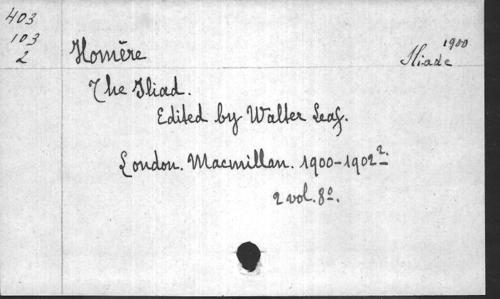 403
103
2
Homère
Iliade 1900
The Iliad.
Edited by Walter Leaf.
London. Macmillan. 1900-1902².
2 vol. 8º.